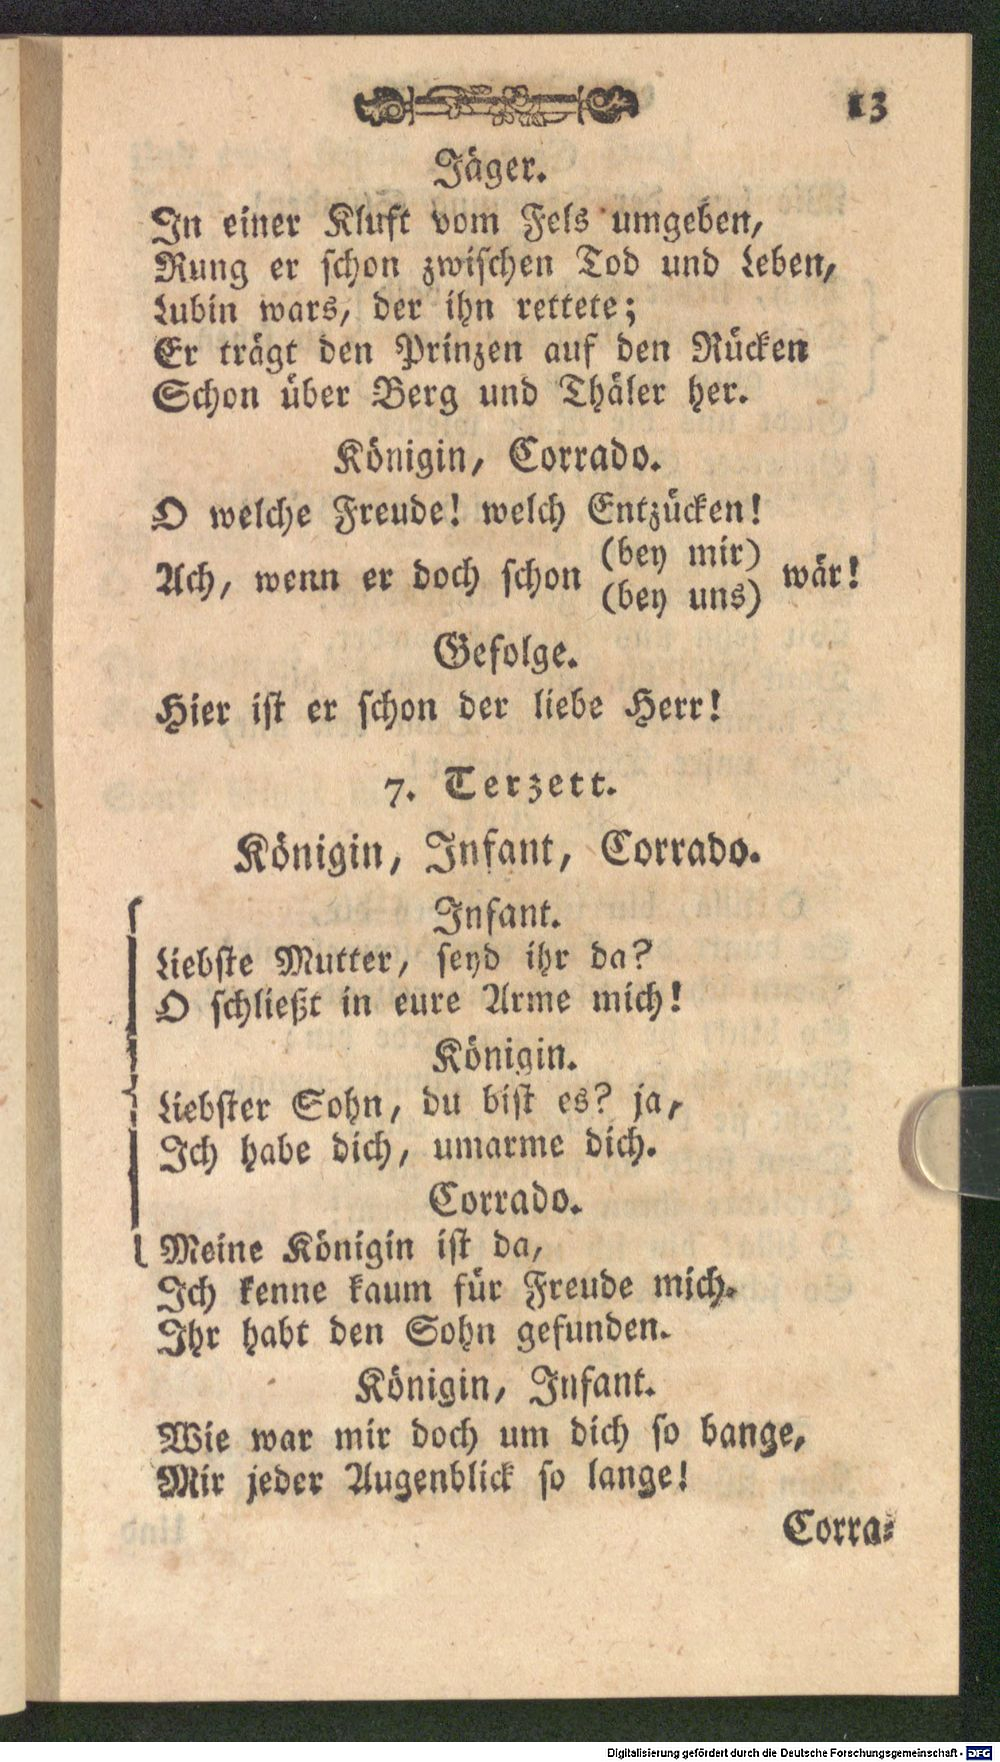 13
Jäger.
In einer Kluft vom Fels umgeben,
Rung er schon zwischen Tod und Leben,
Lubin wars, der ihn rettete;
Er trägt den Prinzen auf den Rücken
Schon über Berg und Thäler her.
Königin, Corrado.
O welche Freude! welch Entzücken!
Ach, wenn er doch schon (bey mir) wär!
(bey uns)
Gefolge.
Hier ist er schon der liebe Herr!
7. Terzett.
Königin, Infant, Corrado.
Infant.
Liebste Mutter, seyd ihr da?
O schließt in eure Arme mich!
Königin.
Liebster Sohn, du bist es? ja,
Ich habe dich, umarme dich.
Corrado.
Meine Königin ist da,
Ich kenne kaum für Freude mich.
Ihr habt den Sohn gefunden.
Königin, Infant.
Wie war mir doch um dich so bange,
Mir jeder Augenblick so lange!
Corra-
Digitalisierung gefördert durch die Deutsche Forschungsgemeinschaft - DFG